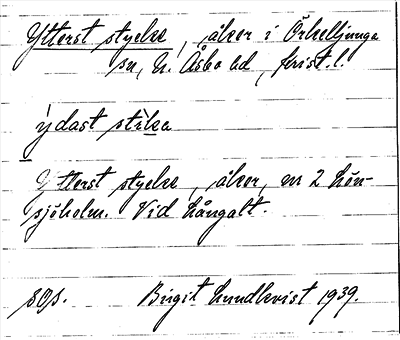 Ytterst stycke, åker i Örkelljunga
sn, N. Åsbo hd, Krist. l.
ydast stika
Ytterst stycke, åker, nr 2 Lön-
sjöholm. Vid Långalt.
sOp. Birgit Lundkvist 1939.